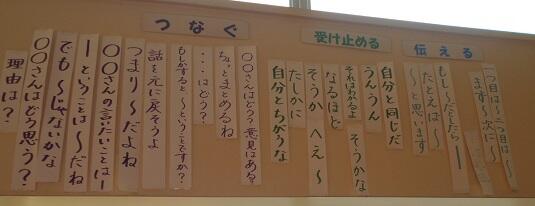 伝える
一つ目は〜二つ目は〜
まず〜次に〜
〜と思います
たとえば〜
もし〜だとしたら―
受け止める
自分と同じだ
うんうん
それはわかるよ　そうかな
なるほど
そうか　へえ〜
たしかに
自分とちがうな
つなぐ
〇〇さんはどう？意見はある？
ちょっとまとめるね
・・・はどう？
もしかすると〜ということですか？
話を元に戻そうよ
つまり〜だよね
〇〇さんの言いたいことは―
―ということは〜だね
でも〜じゃないかな
〇〇さんはどう思う？
理由は？